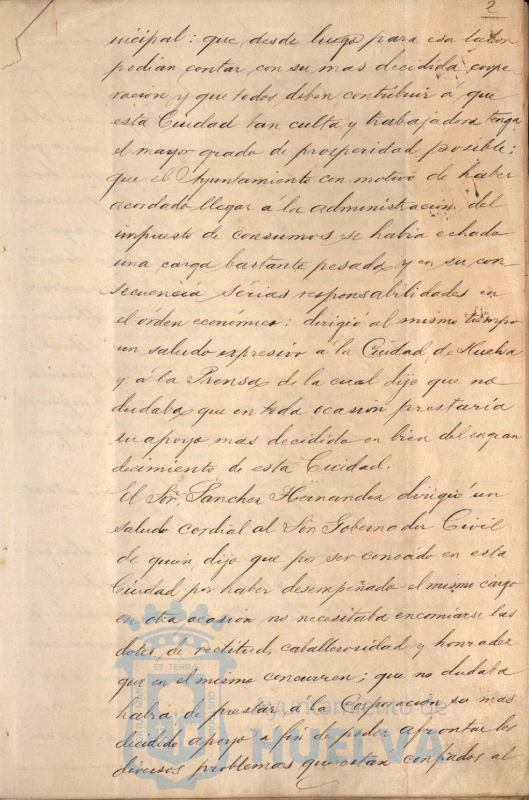 2
nicipal: que desde luego para esa labor
podian contar con su mas decidida coope-
ración y que todos deben contribuir á que
esta Ciudad tan culta y trabajadora tenga
el mayor grado de prosperidad posible;
que el Ayuntamiento con motivo de haber
acordado llegar á la administración del
impuesto de consumos se habia echado
una carga bastante pesada y en su con-
secuencia sérias responsabilidades en
el órden económico: dirigió al mismo tiempo
un saludo expresivo á la Ciudad de Huelva
y á la Prensa de la cual dijo que no
dudaba que en toda ocasión prestaría
su apoyo mas decidido en bien del engran
decimiento de esta Ciudad.
El Sor. Sanchez Hernandez dirigió un
saludo cordial al Sôr Gobernador Civil
de quien dijo que por ser conocido en esta
Ciudad por haber desempeñado el mismo cargo
en otra ocasión no necesitaba encomiarse las
dotes de rectitud, caballerosidad y honradez
que en el mismo concurren; que no dudaba
habia de prestar á la Corporación su mas
decidido apoyo á fin de poder afrontar los
diversos problemas que están confiados al
ET TERRA
Ayuntamiento de
HUELVA